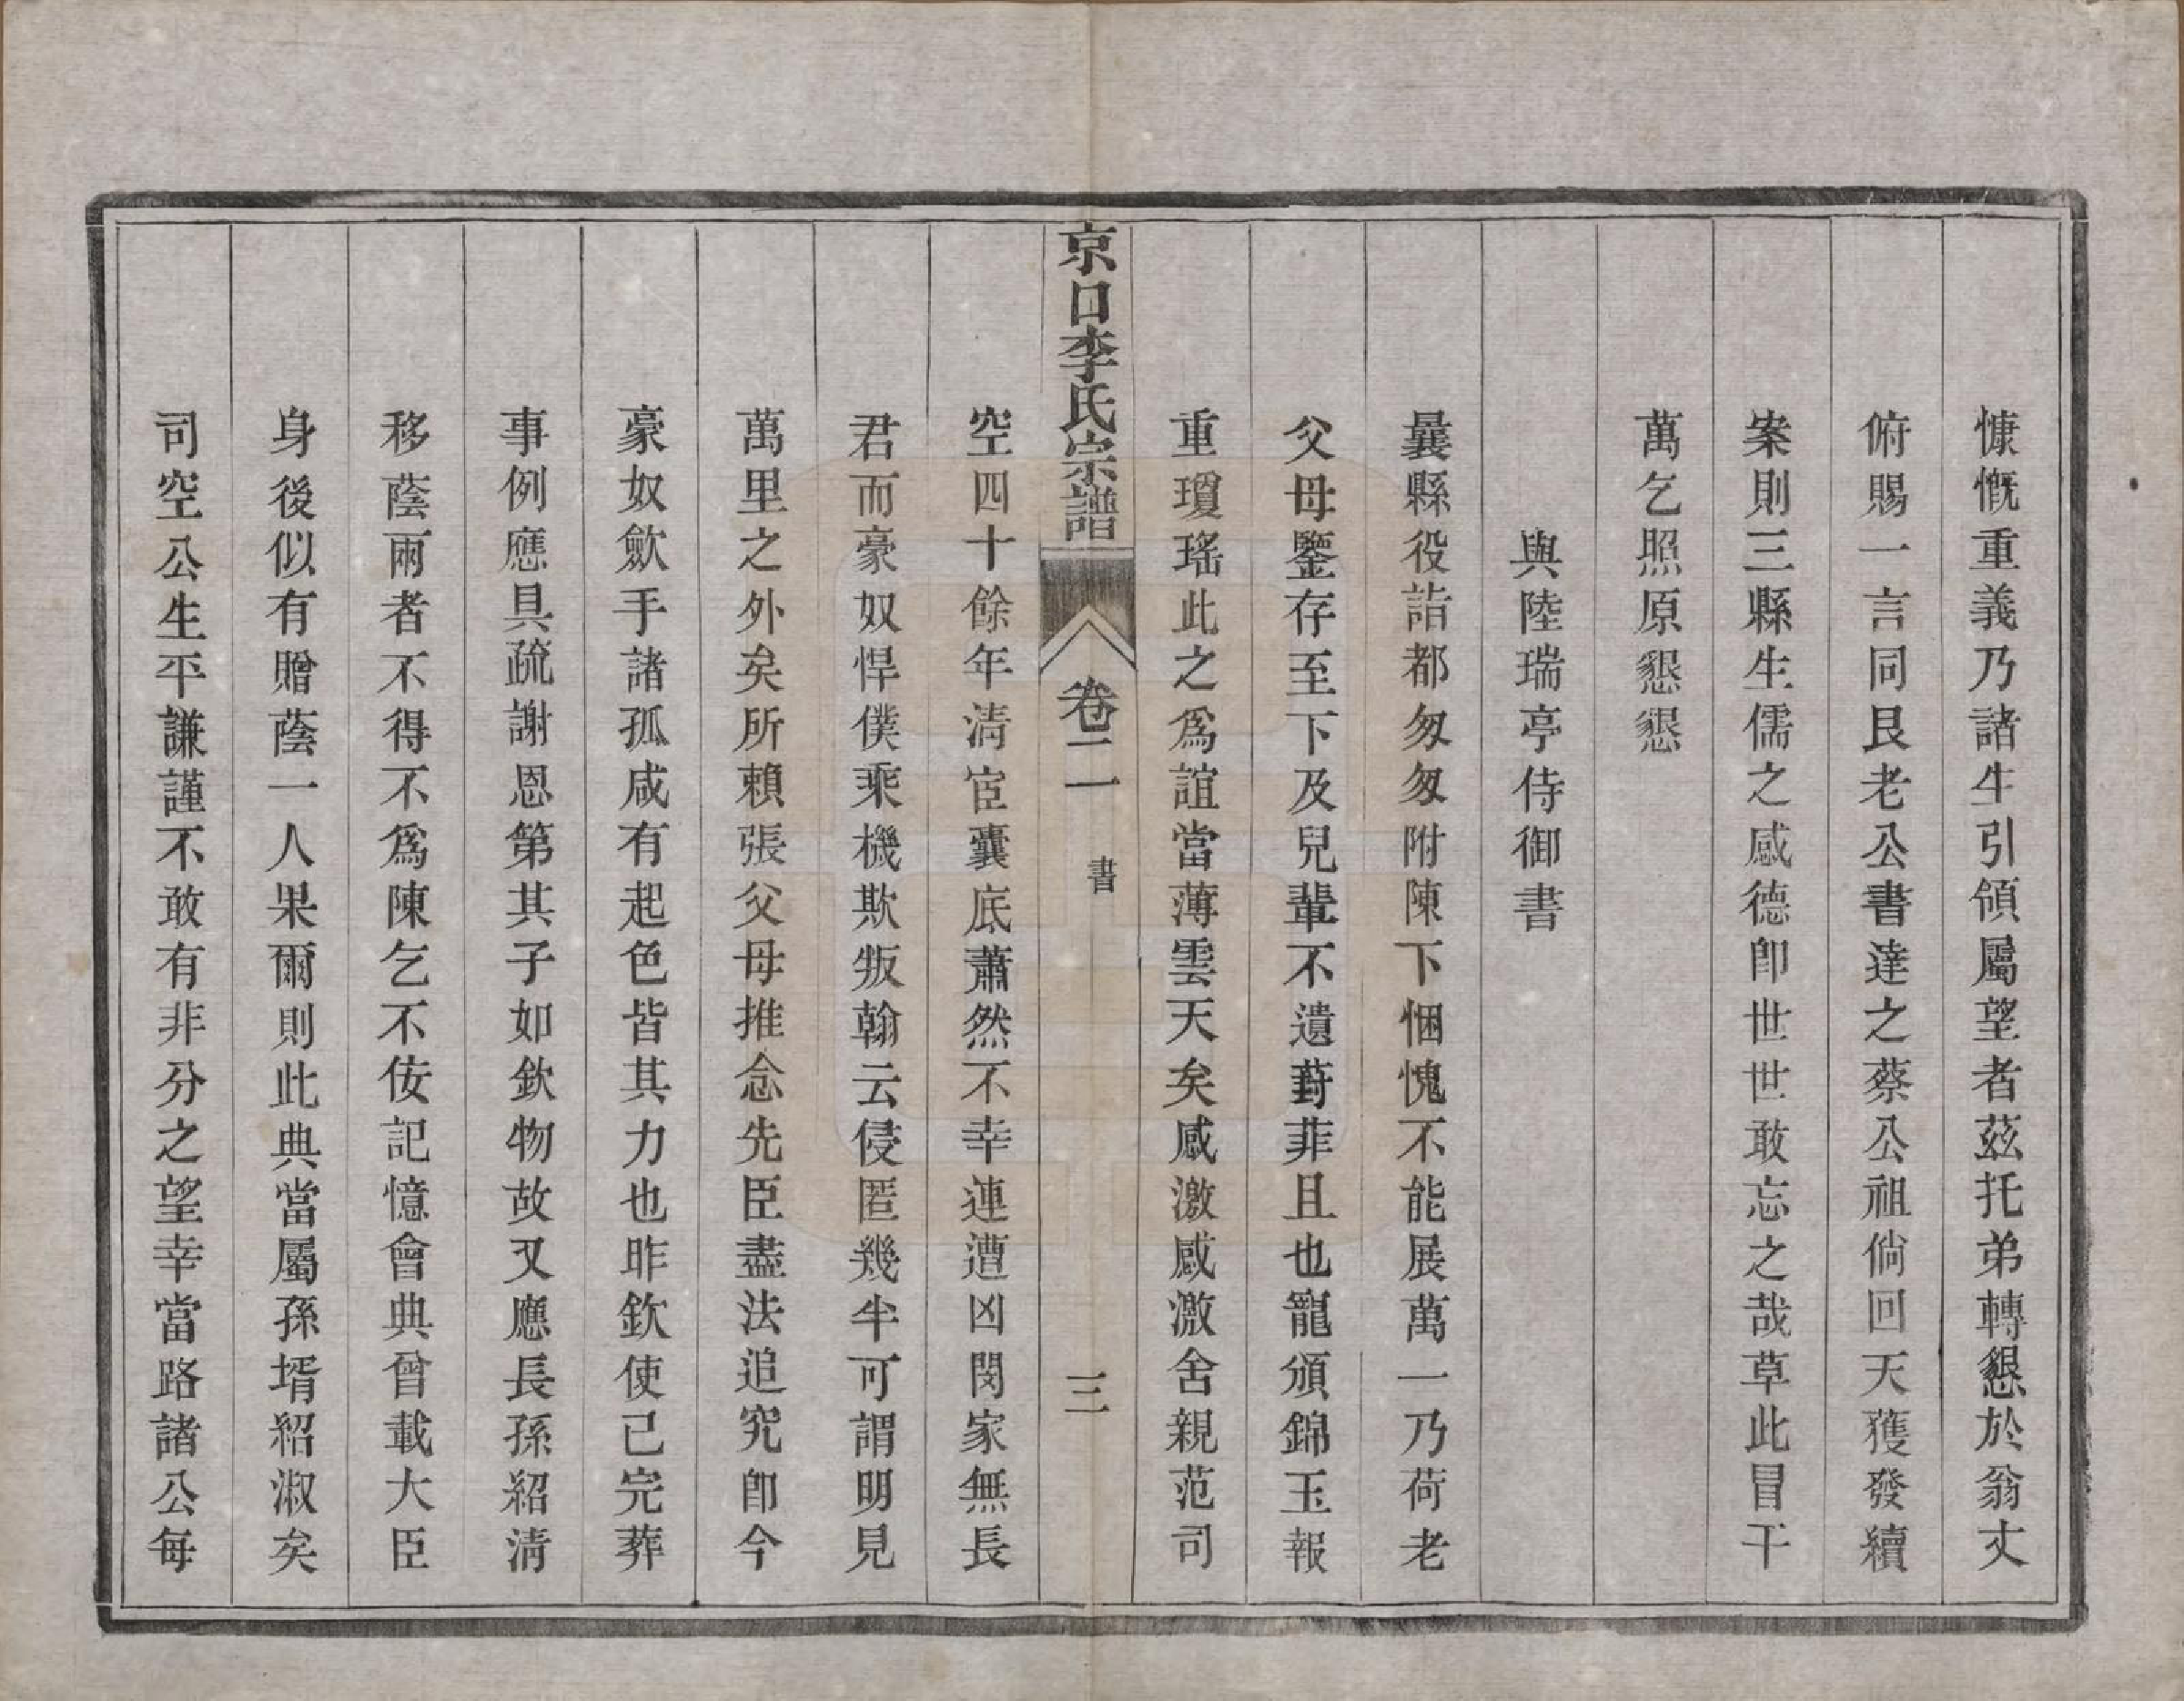 慷慨重義乃諸生引領屬望者茲托弟轉懇於翁丈
俯賜一言同艮老公書達之蔡公祖倘回天獲發續
案則三縣生儒之感德卽世世敢忘之哉草此冒干
萬乞照原懇懇
與陸瑞亭侍御書
曩縣役詣都匆匆附陳下悃愧不能展萬一乃荷老
父母鑒存至下及兒輩不遺葑菲且也寵頒錦玉報
重瓊瑤此之爲誼當薄雲天矣感激感激舍親范司
京口李氏宗譜
卷二
書
三
空四十餘年清宦囊底蕭然不幸連遭凶閔家無長
君而豪奴悍僕乘機欺叛翰云侵匿幾半可謂明見
萬里之外矣所賴張父母推念先臣盡法追究卽今
豪奴歛手諸孤咸有起色皆其力也昨欽使已完葬
事例應具疏謝恩第其子如欽物故又應長孫紹淸
移蔭兩者不得不爲陳乞不侫記憶會典曾載大臣
身後似有贈蔭一人果爾則此典當屬孫壻紹淑矣
司空公生平謙謹不敢有非分之望幸當路諸公每